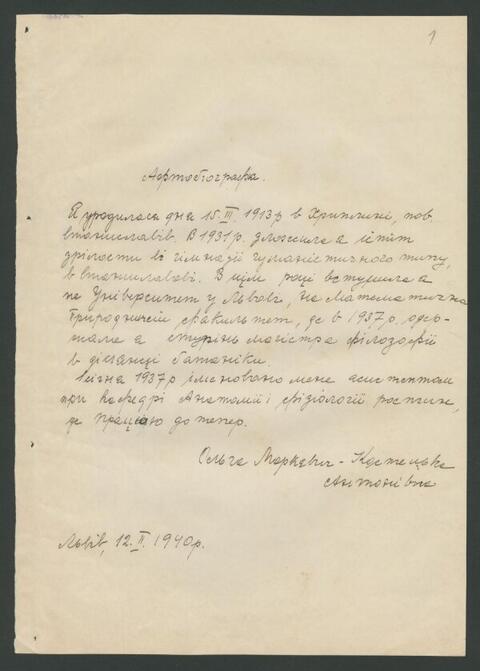 1
Автобіографія.
Я уродилась дня 15. III. 1913 р в Хриплині, пов
Станиславів. В 1931 р. зложила я іспит
зрілости в гімназії гуманістичного типу,
в Станиславові. В цім році вступила я
на Університет у Львові, на Математично
Природничий факультет, де в 1937 р. одер-
жала я ступінь магістра філозофії
в ділянці ботаніки.
1 січня 1937 р іменовано мене асистентом
при Кафедрі Анатомії і фізіології рослин,
де працюю до тепер.
Ольга Маркевич -
Антонівна
Львів, 12. II. 1940 р.